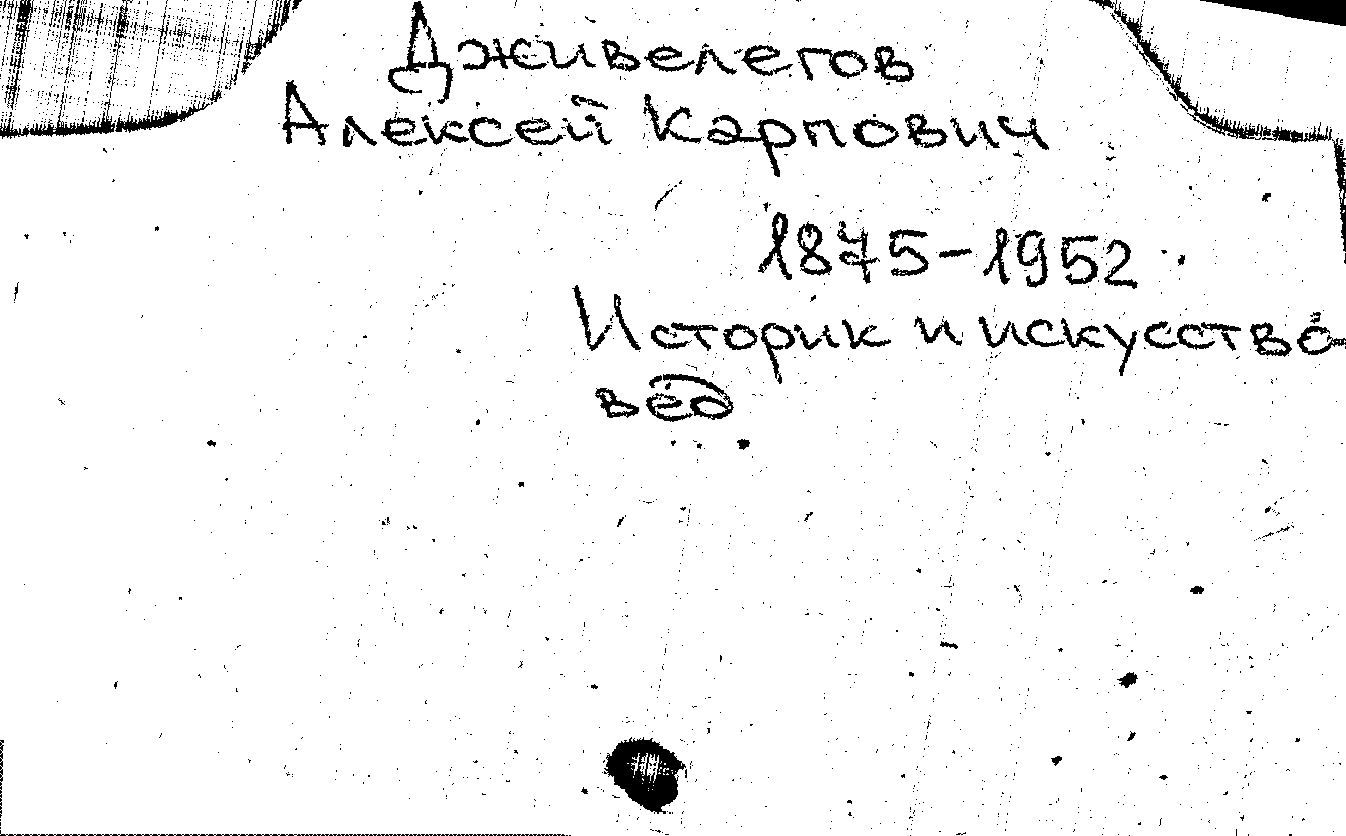 Дживелегов
Алексей Карпович
1875-1952
Историк и искусство-
вед